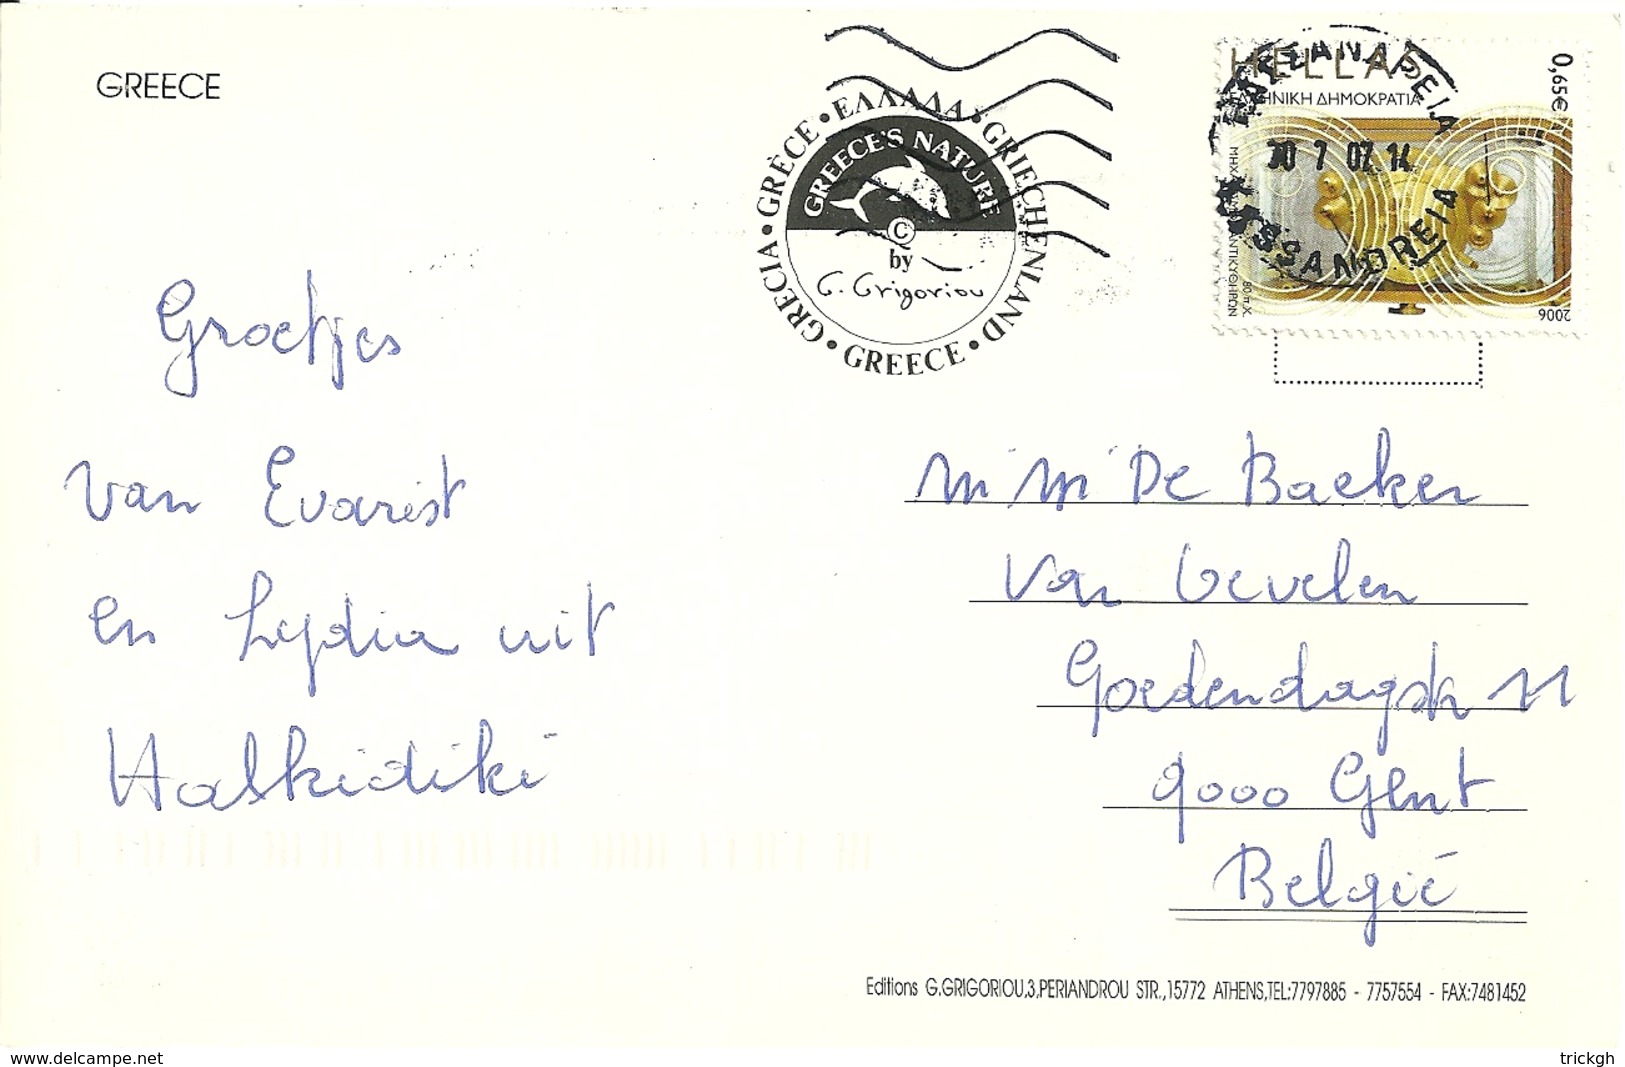 GREECE
GRECIA • GRÈCE • ΕΛΛΑΔΑ • GRIECHENLAND • GREECE •
GREECE'S NATURE
©
by
G. Grigoriou
HELLAS
0,65€
ΕΛΛΗΝΙΚΗ ΔΗΜΟΚΡΑΤΙΑ
30 7 07 14
2006
Groetjes
van Evarist
en Lydia uit
Halkidiki
De Baeker
Van Gevelen
Goedendagstr 11
9000 Gent
België
Editions G.GRIGORIOU,3,PERIANDROU STR.,15772 ATHENS,TEL:7797885 - 7757554 - FAX:7481452
www.delcampe.net
trickgh